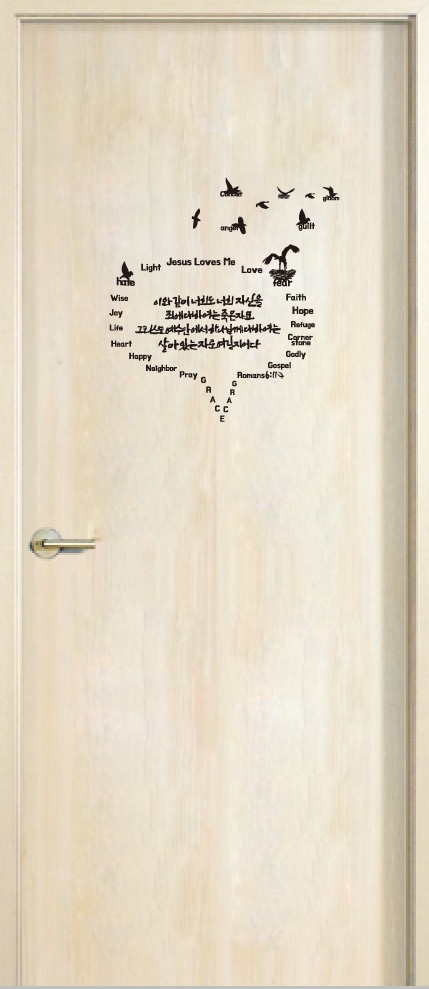 gloom
anger
guilt
Jesus Loves Me
Light
Love
hate
fear
Wise
Faith
Joy
Hope
Life
Refuge
Heart
Corner
stone
Happy
Godly
Neighbor
Gospel
Pray
Romans6:11
GRACE
GRACE
이와같이 너희도 너희 자신을
죄에 대하여는 죽은 자요
그리스도 예수 안에서 하나님께 대하여는
살아 있는 자로 여길지어다